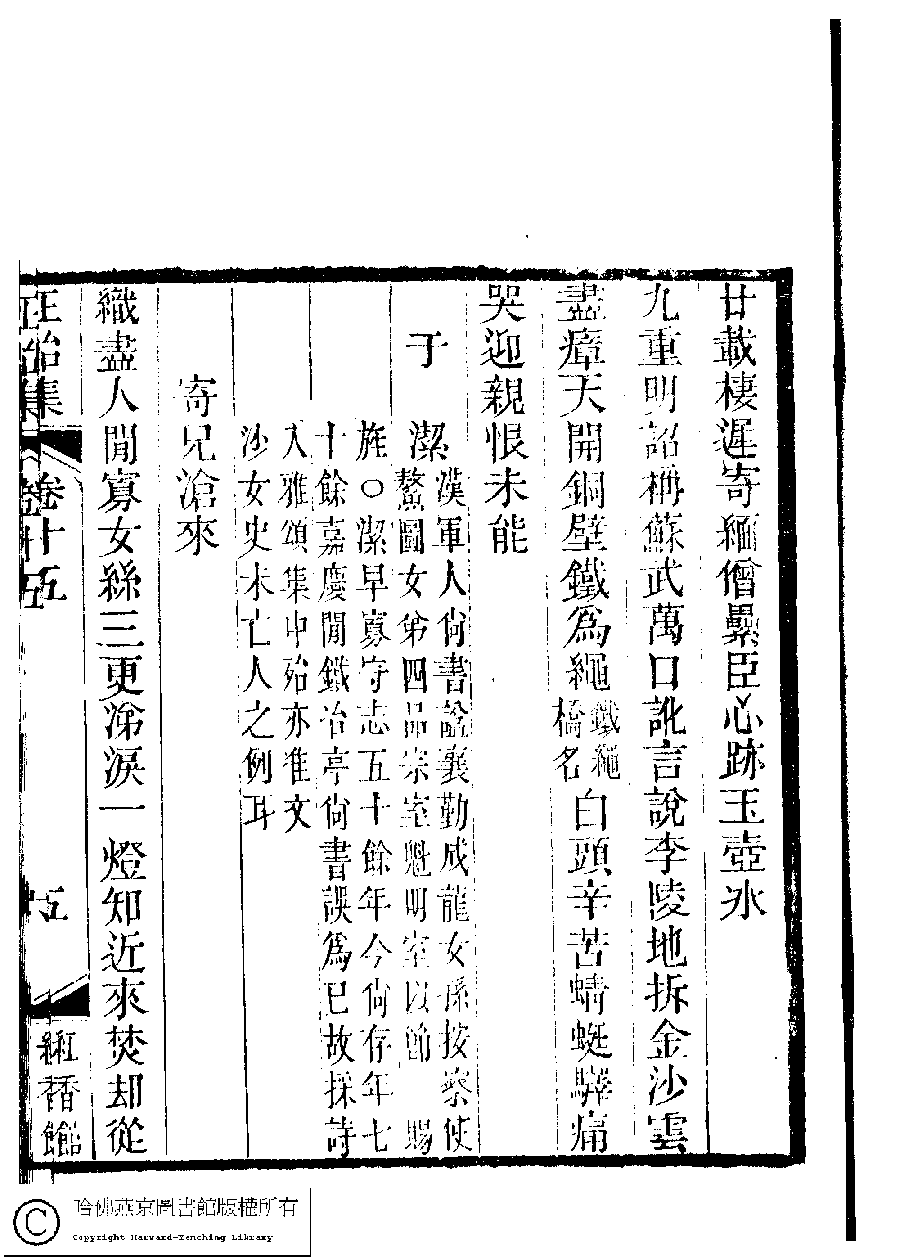 廿載棲遲寄緬僧纍臣心跡玉壺冰
九重明詔稱蘇武萬口訛言說李陵地拆金沙雲
盡瘴天開銅壁鐵為繩鐵繩橋名白頭辛苦蜻蜓驛痛
哭迎親恨未能
于潔漢軍人尚書諡襄勤成龍女孫按察使
鰲圖女弟四品宗室魁明室以節 賜
旌○潔早寡守志五十餘年今尚存年七
十餘嘉慶閒鐵冶亭尚書誤為已故採詩
入雅頌集中殆亦淮文
沙女史未亡人之例耳
寄兄滄來
織盡人閒寡女絲三更涕淚一燈知近來焚却從
正始集 卷十五 五 紅香館
哈佛燕京圖書館版權所有
Copyright Harvard-Yenching Library